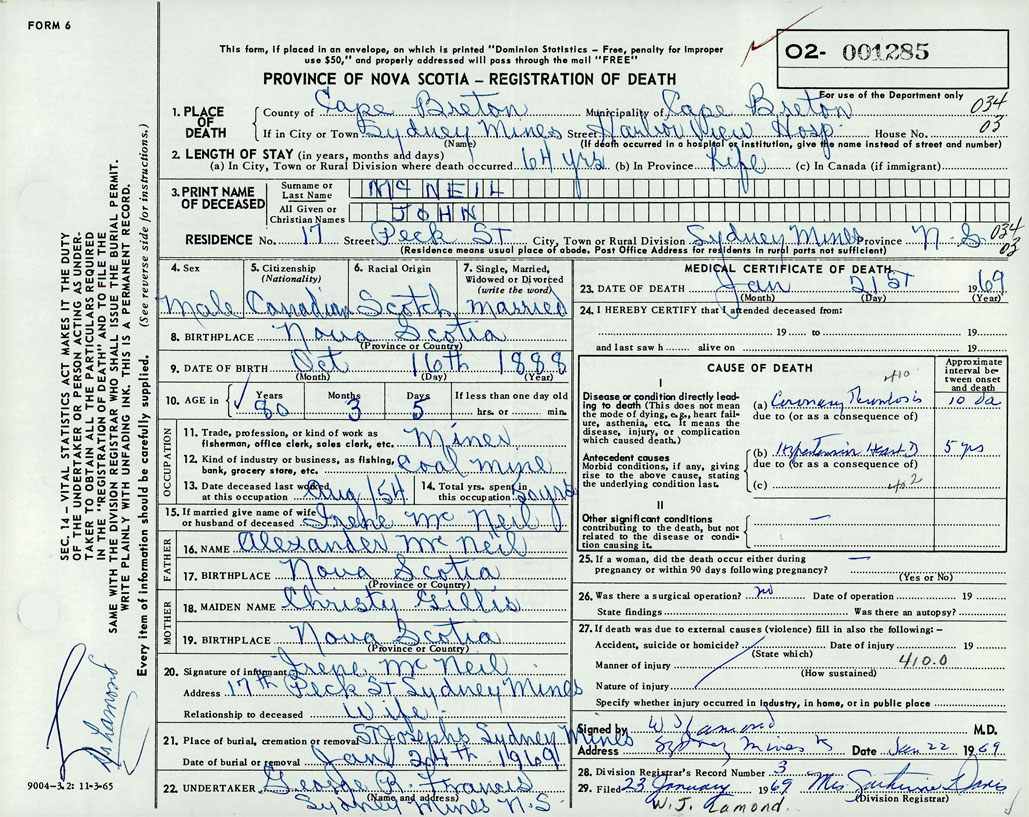 FORM 6
This form, if placed in an envelope, on which is printed "Dominion Statistics – Free, penalty for improper
use $50," and properly addressed will pass through the mail "FREE"
PROVINCE OF NOVA SCOTIA – REGISTRATION OF DEATH
02- 001285
For use of the Department only
034
03
1. PLACE OF DEATH
County of Cape Breton Municipality of Cape Breton
If in City or Town Sydney Mines Street Harbor View Hosp. House No.
(Name) (If death occurred in a hospital or institution, give the name instead of street and number)
2. LENGTH OF STAY (in years, months and days)
(a) In City, Town or Rural Division where death occurred 64 yrs (b) In Province Life (c) In Canada (if immigrant)
3. PRINT NAME OF DECEASED
Surname or Last Name McNEIL
All Given or Christian Names JOHN
RESIDENCE No. 17 Street Peck St City, Town or Rural Division Sydney Mines Province N S
(Residence means usual place of abode. Post Office Address for residents in rural parts not sufficient)
034
03
4. Sex
Male
5. Citizenship (Nationality)
Canadian
6. Racial Origin
Scotch
7. Single, Married, Widowed or Divorced (write the word)
Married
8. BIRTHPLACE Nova Scotia
(Province or Country)
9. DATE OF BIRTH Oct 16th 1888
(Month) (Day) (Year)
10. AGE in Years Months Days If less than one day old
80 3 5 hrs. or min.
OCCUPATION
11. Trade, profession, or kind of work as fisherman, office clerk, sales clerk, etc. Mines
12. Kind of industry or business, as fishing, bank, grocery store, etc. Coal mine
13. Date deceased last worked at this occupation Aug /54
14. Total yrs. spent in this occupation 50 yrs
15. If married give name of wife or husband of deceased Irene McNeil
FATHER
16. NAME Alexander McNeil
17. BIRTHPLACE Nova Scotia
(Province or Country)
MOTHER
18. MAIDEN NAME Christy Gillis
19. BIRTHPLACE Nova Scotia
(Province or Country)
20. Signature of informant Irene McNeil
Address 17th Peck St Sydney Mines
Relationship to deceased Wife
21. Place of burial, cremation or removal St Josephs Sydney Mines
Date of burial or removal Jan 24th 1969
22. UNDERTAKER George R. Francis
(Name and address)
Sydney Mines N.S.
MEDICAL CERTIFICATE OF DEATH
23. DATE OF DEATH Jan 21st 1969
(Month) (Day) (Year)
24. I HEREBY CERTIFY that I attended deceased from:
19 to 19
and last saw h alive on 19
CAUSE OF DEATH
Approximate interval between onset and death
410
I
Disease or condition directly leading to death (This does not mean the mode of dying, e.g., heart failure, asthenia, etc. It means the disease, injury, or complication which caused death.)
(a) Coronary Thrombosis 10 da
due to (or as a consequence of)
Antecedent causes
Morbid conditions, if any, giving rise to the above cause, stating the underlying condition last.
(b) Hypertensive Heart D 5 yrs
due to (or as a consequence of)
(c)
402
II
Other significant conditions
contributing to the death, but not related to the disease or condition causing it.
25. If a woman, did the death occur either during
pregnancy or within 90 days following pregnancy?
(Yes or No)
26. Was there a surgical operation? no Date of operation 19
State findings Was there an autopsy?
27. If death was due to external causes (violence) fill in also the following: –
Accident, suicide or homicide? Date of injury 19
(State which)
Manner of injury 410.0
(How sustained)
Nature of injury
Specify whether injury occurred in industry, in home, or in public place
Signed by W J Lamond M.D.
Address Sydney Mines Date Jan 22 1969
28. Division Registrar's Record Number 3
29. Filed 23 January 1969 Mrs Catherine Davis
(Division Registrar)
W. J. Lamond.
SEC. 14 – VITAL STATISTICS ACT MAKES IT THE DUTY
OF THE UNDERTAKER OR PERSON ACTING AS UNDER-
TAKER TO OBTAIN ALL THE PARTICULARS REQUIRED
IN THE "REGISTRATION OF DEATH" AND TO FILE THE
SAME WITH THE DIVISION REGISTRAR WHO SHALL ISSUE THE BURIAL PERMIT.
WRITE PLAINLY WITH UNFADING INK. THIS IS A PERMANENT RECORD.
Every item of information should be carefully supplied. (See reverse side for instructions.)
Lamond
9004-3.2: 11-3-65